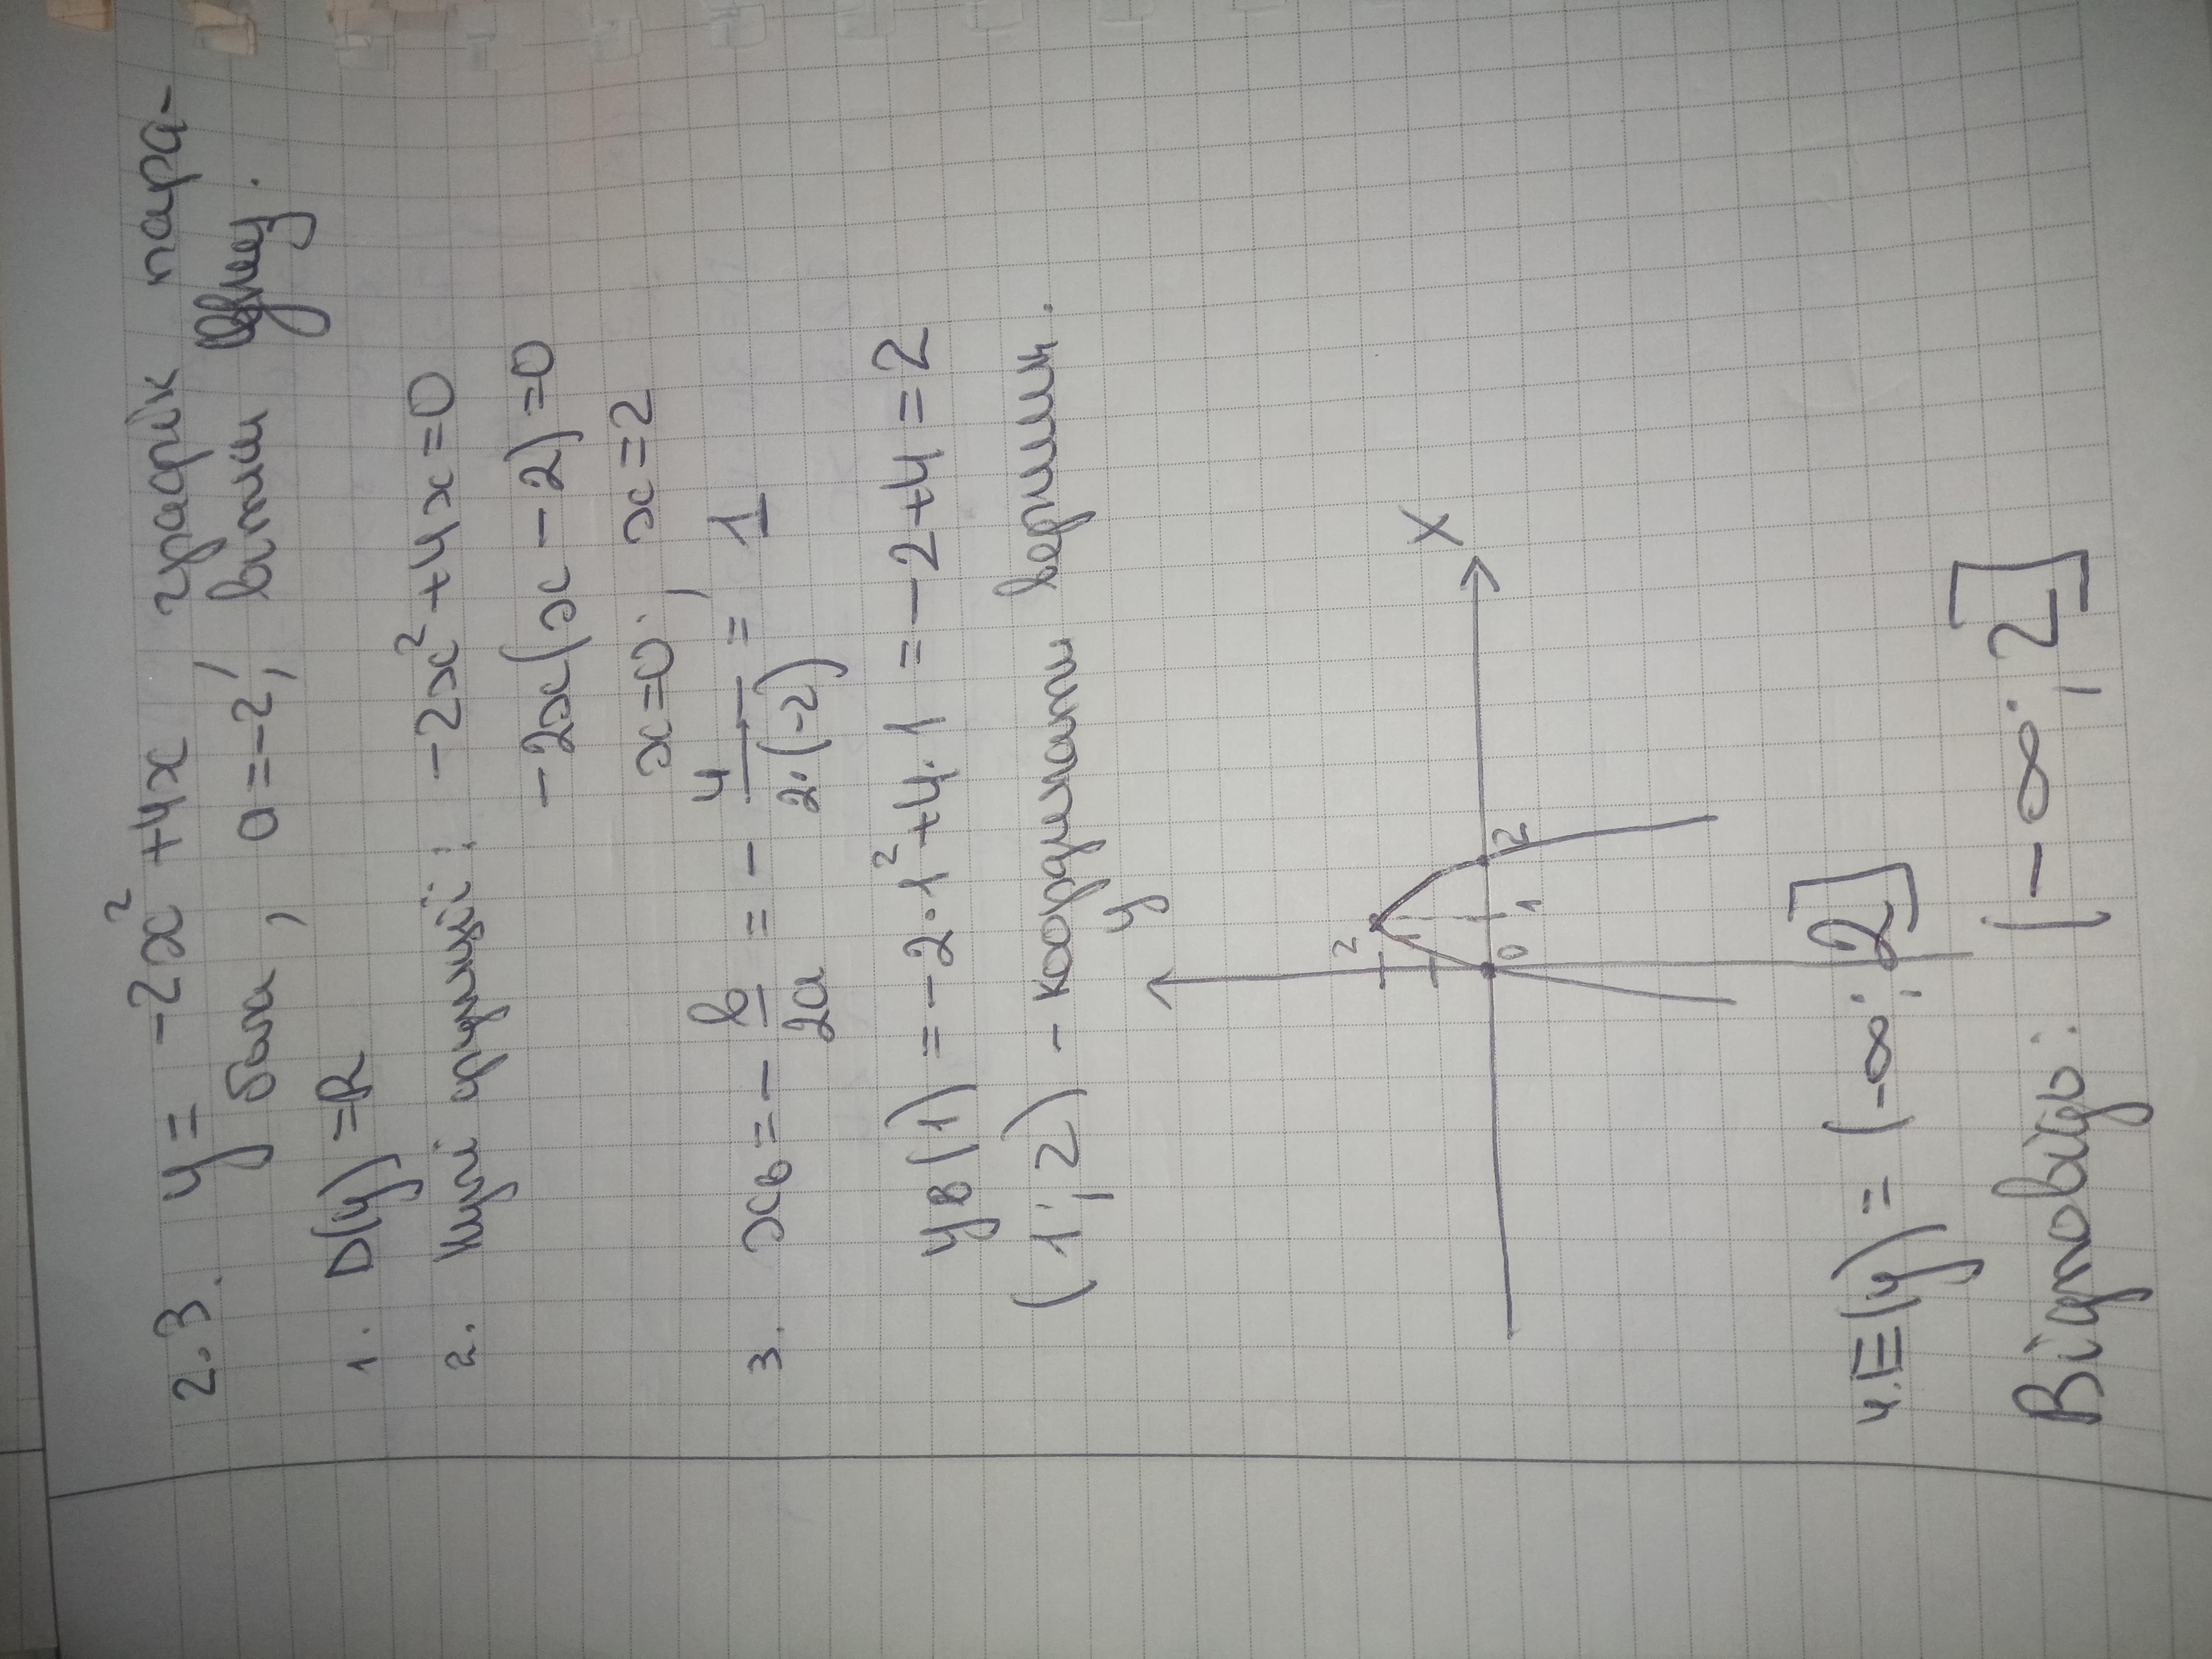 2.3. y = -2x² + 4x графік пара-
бола, a = -2, вітки вниз.
1. D(y) = R
2. Нулі функції: -2x² + 4x = 0
-2x(x - 2) = 0
x = 0; x = 2
3. xв = - в/2a = - 4/2·(-2) = 1
yв(1) = -2·1² + 4·1 = -2 + 4 = 2
(1; 2) - координати вершин.
y
x
2
0
1
2
4. E(y) = (-∞; 2]
Відповідь: (-∞; 2]